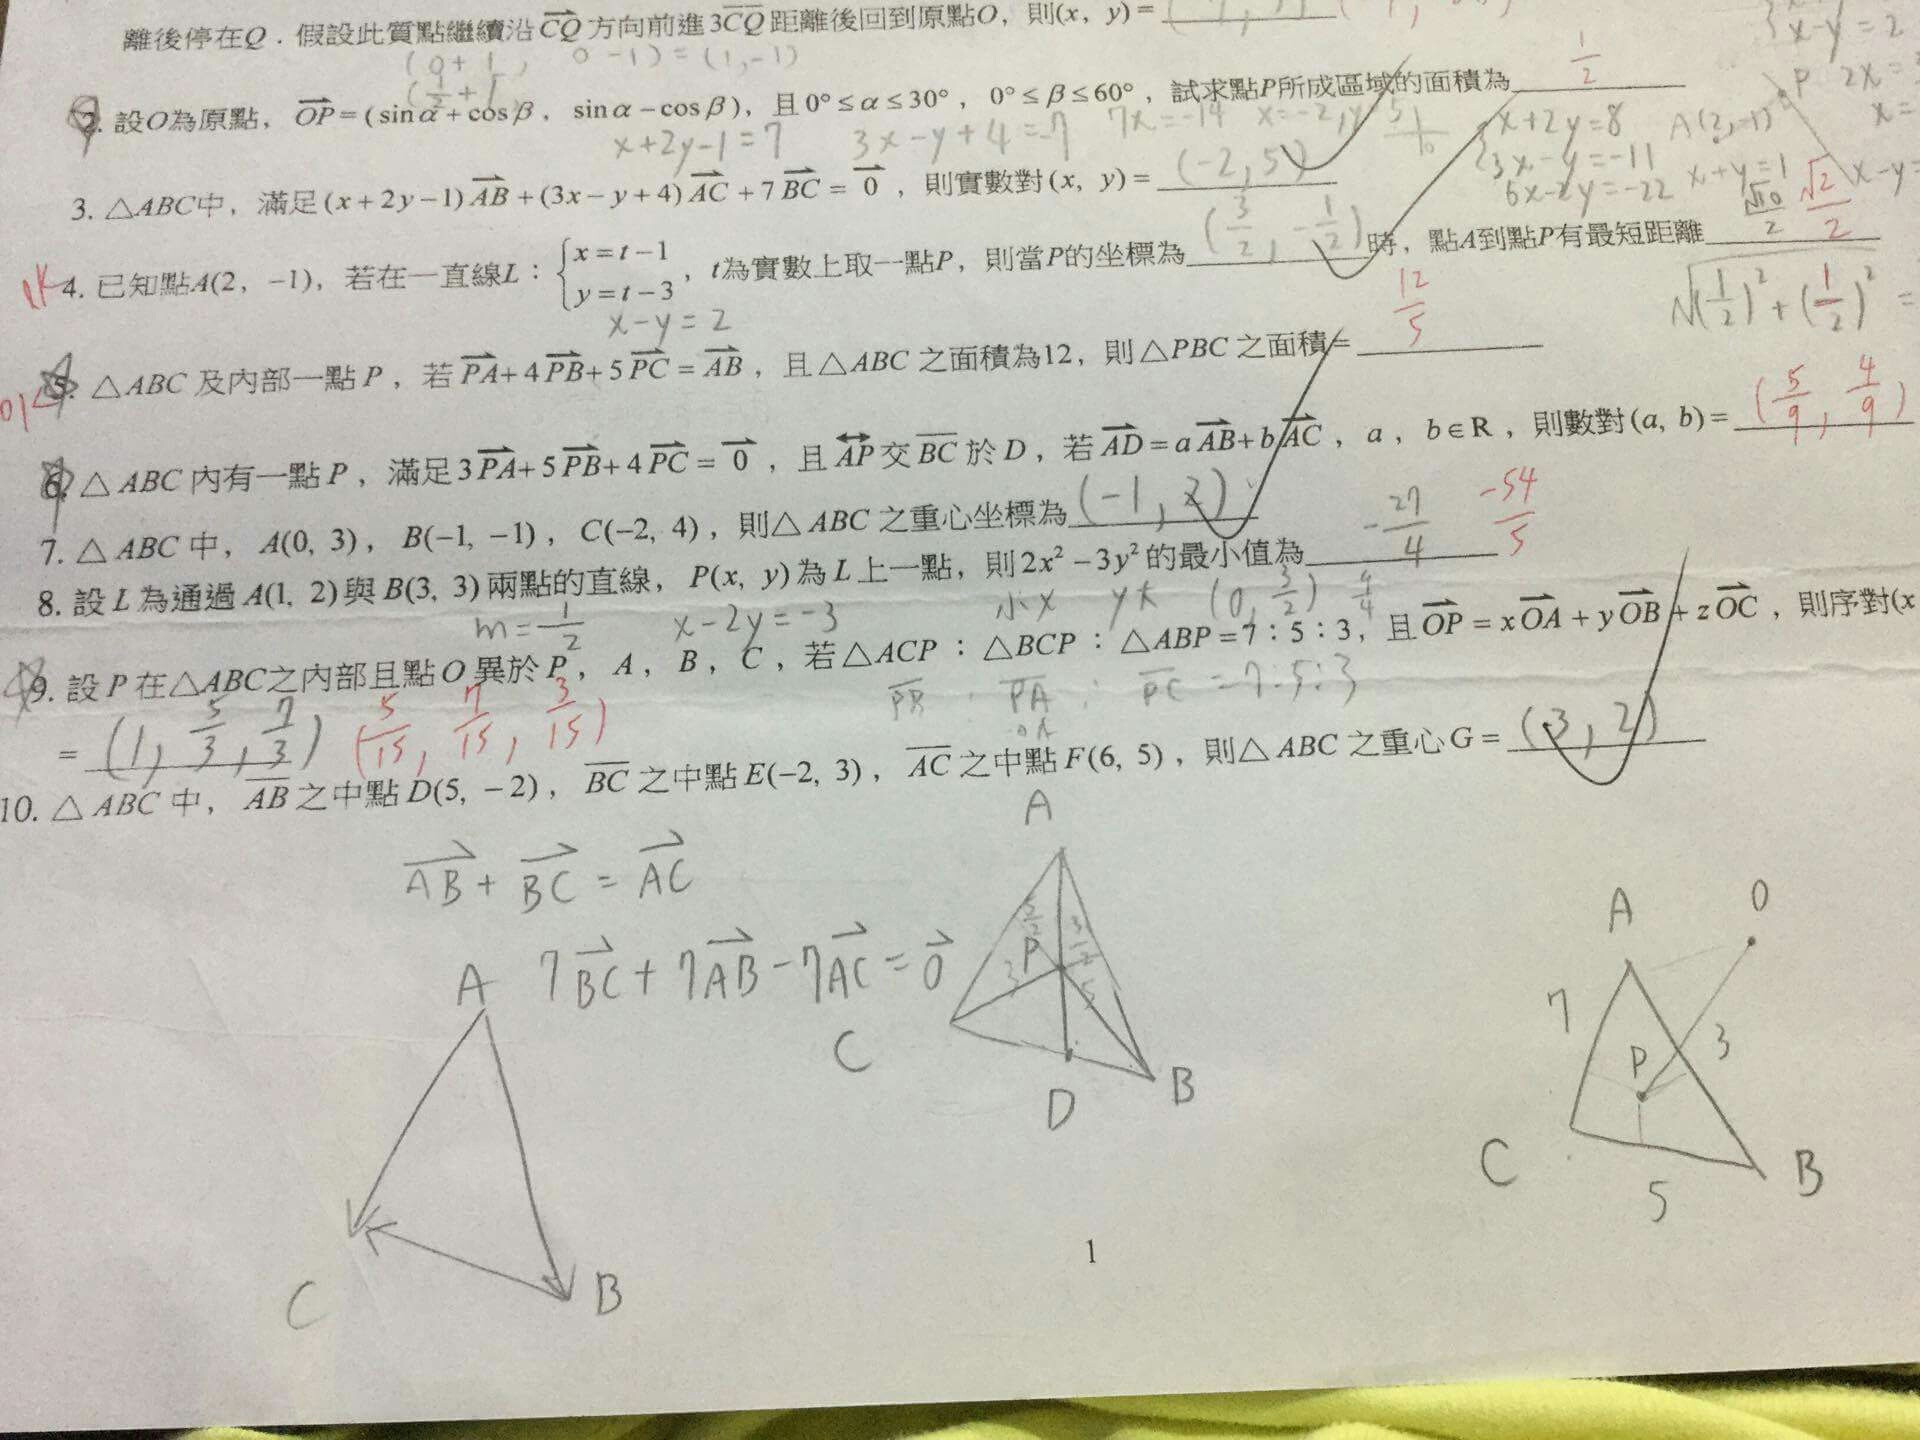 離後停在Q．假設此質點繼續沿CQ方向前進3CQ距離後回到原點O，則(x, y)=
(0+1, 0-1)=(1,-1)
(1/2+1
2. 設O為原點，OP=(sinα+cosβ，sinα-cosβ)，且0°≤α≤30°，0°≤β≤60°，試求點P所成區域的面積為 1/2
x+2y-1=7 3x-y+4=-7 7x=-14 x=-2, y
x+2y=8
3x-y=-11
6x-2y=-22
3. △ABC中，滿足(x+2y-1)AB+(3x-y+4)AC+7BC=0，則實數對(x, y)= (-2,5)
4. 已知點A(2, -1)，若在一直線L：{x=t-1 y=t-3，t為實數上取一點P，則當P的坐標為 (3/2, -1/2) 時，點A到點P有最短距離 √10/2 √2/2
x-y=2
A(2,-1)
P
x+y=1
x-y=2
√(1/2)²+(1/2)² =
5. △ABC及內部一點P，若PA+4PB+5PC=AB，且△ABC之面積為12，則△PBC之面積= 12/5
6. △ABC內有一點P，滿足3PA+5PB+4PC=0，且AP交BC於D，若AD=aAB+bAC，a，b∈R，則數對(a, b)= (5/9, 4/9)
7. △ABC中，A(0, 3)，B(-1, -1)，C(-2, 4)，則△ABC之重心坐標為 (-1, 2)
8. 設L為通過A(1, 2)與B(3, 3)兩點的直線，P(x, y)為L上一點，則2x²-3y²的最小值為 -27/4 -54/5
m=1/2 x-2y=-3 小x y大 (0, 3/2)
9. 設P在△ABC之內部且點O異於P，A，B，C，若△ACP：△BCP：△ABP=7：5：3，且OP=xOA+yOB+zOC，則序對(x
PB : PA : PC = 7:5:3
= (1, 5/3, 7/3) (5/15, 7/15, 3/15)
10. △ABC中，AB之中點D(5, -2)，BC之中點E(-2, 3)，AC之中點F(6, 5)，則△ABC之重心G= (3,2)
AB+BC=AC
7BC+7AB-7AC=0
A
C
B
A
P
3
5
C
D
B
A
O
7
P
3
C
5
B
1